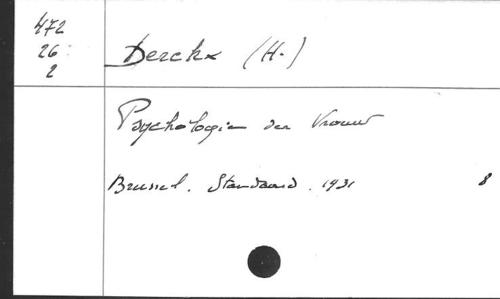 472
26
2
Derckx (H.)
Psychologie der Vrouw
Brussel. Standaard. 1931 8